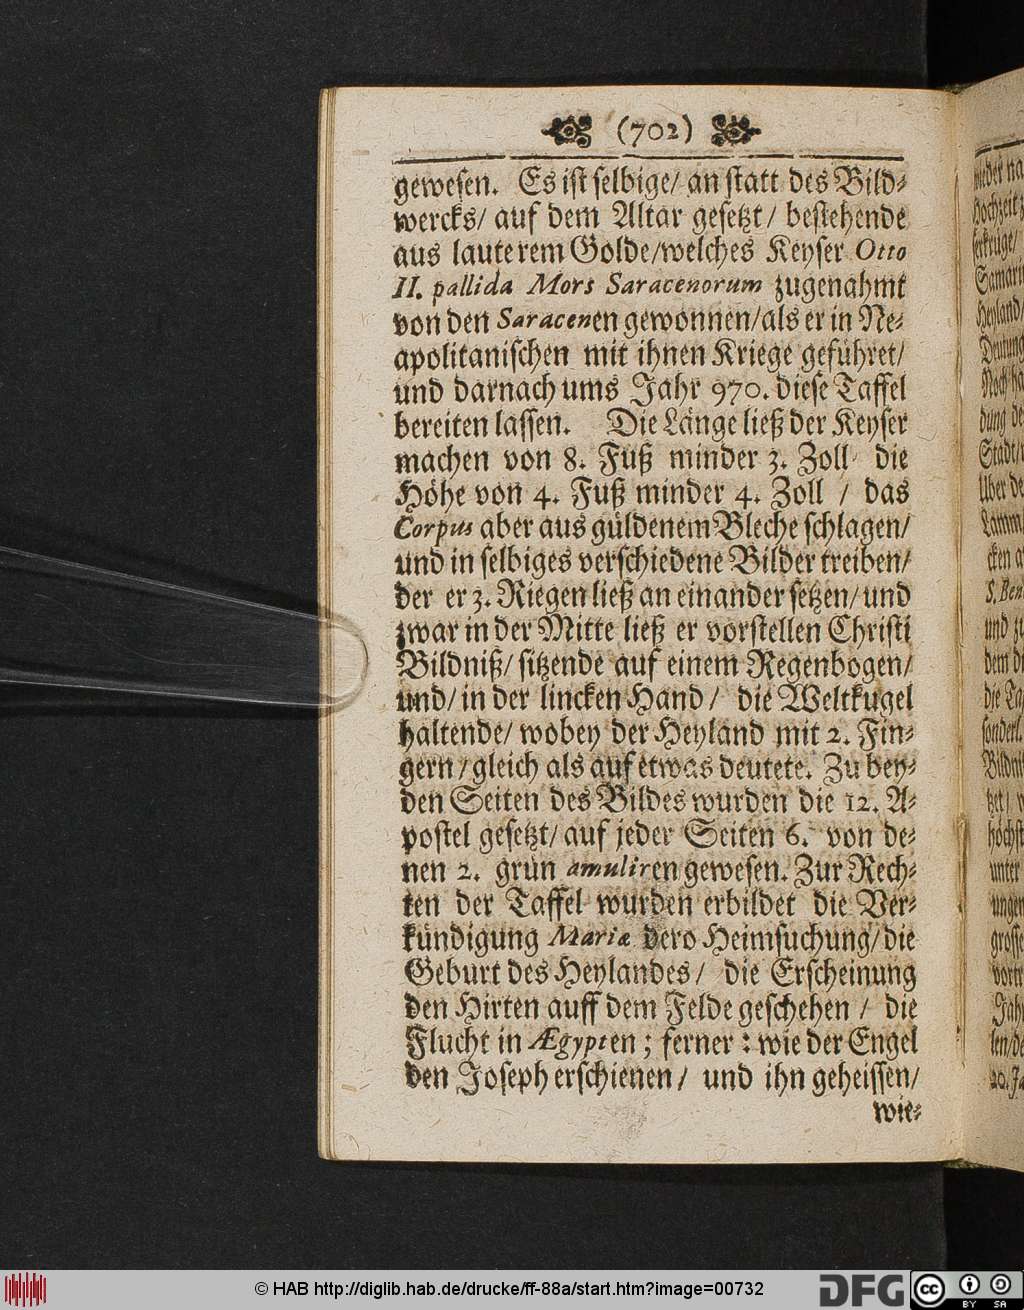 (702)
gewesen. Es ist selbige/ an statt des Bild-
wercks/ auf dem Altar gesetzt/ bestehende
aus lauterem Golde/welches Keyser Otto
II. pallida Mors Saracenorum zugenahmt
von den Saracenen gewonnen/als er in Ne-
apolitanischen mit ihnen Kriege geführet/
und darnach ums Jahr 970. diese Taffel
bereiten lassen. Die Länge ließ der Keyser
machen von 8. Fuß minder 3. Zoll die
Höhe von 4. Fuß minder 4. Zoll / das
Corpus aber aus güldenem Bleche schlagen/
und in selbiges verschiedene Bilder treiben/
der er 3. Riegen ließ an einander setzen/ und
zwar in der Mitte ließ er vorstellen Christi
Bildniß/ sitzende auf einem Regenbogen/
und/ in der lincken Hand/ die Weltkugel
haltende/ wobey der Heyland mit 2. Fin-
gern/gleich als auf etwas deutete. Zu bey-
den Seiten des Bildes wurden die 12. A-
postel gesetzt/ auf jeder Seiten 6. von de-
nen 2. grün amuliren gewesen. Zur Rech-
ten der Taffel wurden erbildet die Ver-
kündigung Mariæ dero Heimsuchung/ die
Geburt des Heylandes/ die Erscheinung
den Hirten auff dem Felde geschehen / die
Flucht in Ægypten; ferner: wie der Engel
den Joseph erschienen/ und ihn geheissen/
wie-
© HAB http://diglib.hab.de/drucke/ff-88a/start.htm?image=00732
DFG
cc
BY SA